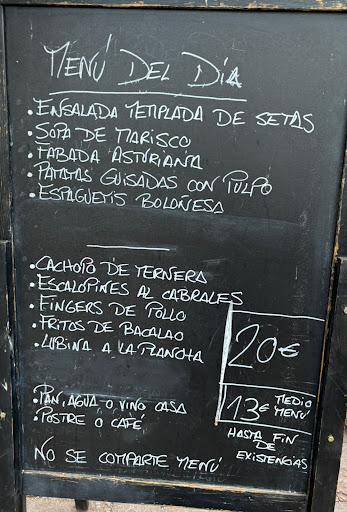 MENÚ DEL DÍA
• ENSALADA TEMPLADA DE SETAS
• SOPA DE MARISCO
• FABADA ASTURIANA
• PATATAS GUISADAS CON PULPO
• ESPAGUETIS BOLOÑESA
• CACHOPO DE TERNERA
• ESCALOPINES AL CABRALES
• FINGERS DE POLLO
• FRITOS DE BACALAO
• LUBINA A LA PLANCHA
20€
• PAN, AGUA O VINO CASA
• POSTRE O CAFÉ
13€ MEDIO MENÚ
HASTA FIN DE EXISTENCIAS
NO SE COMPARTE MENÚ